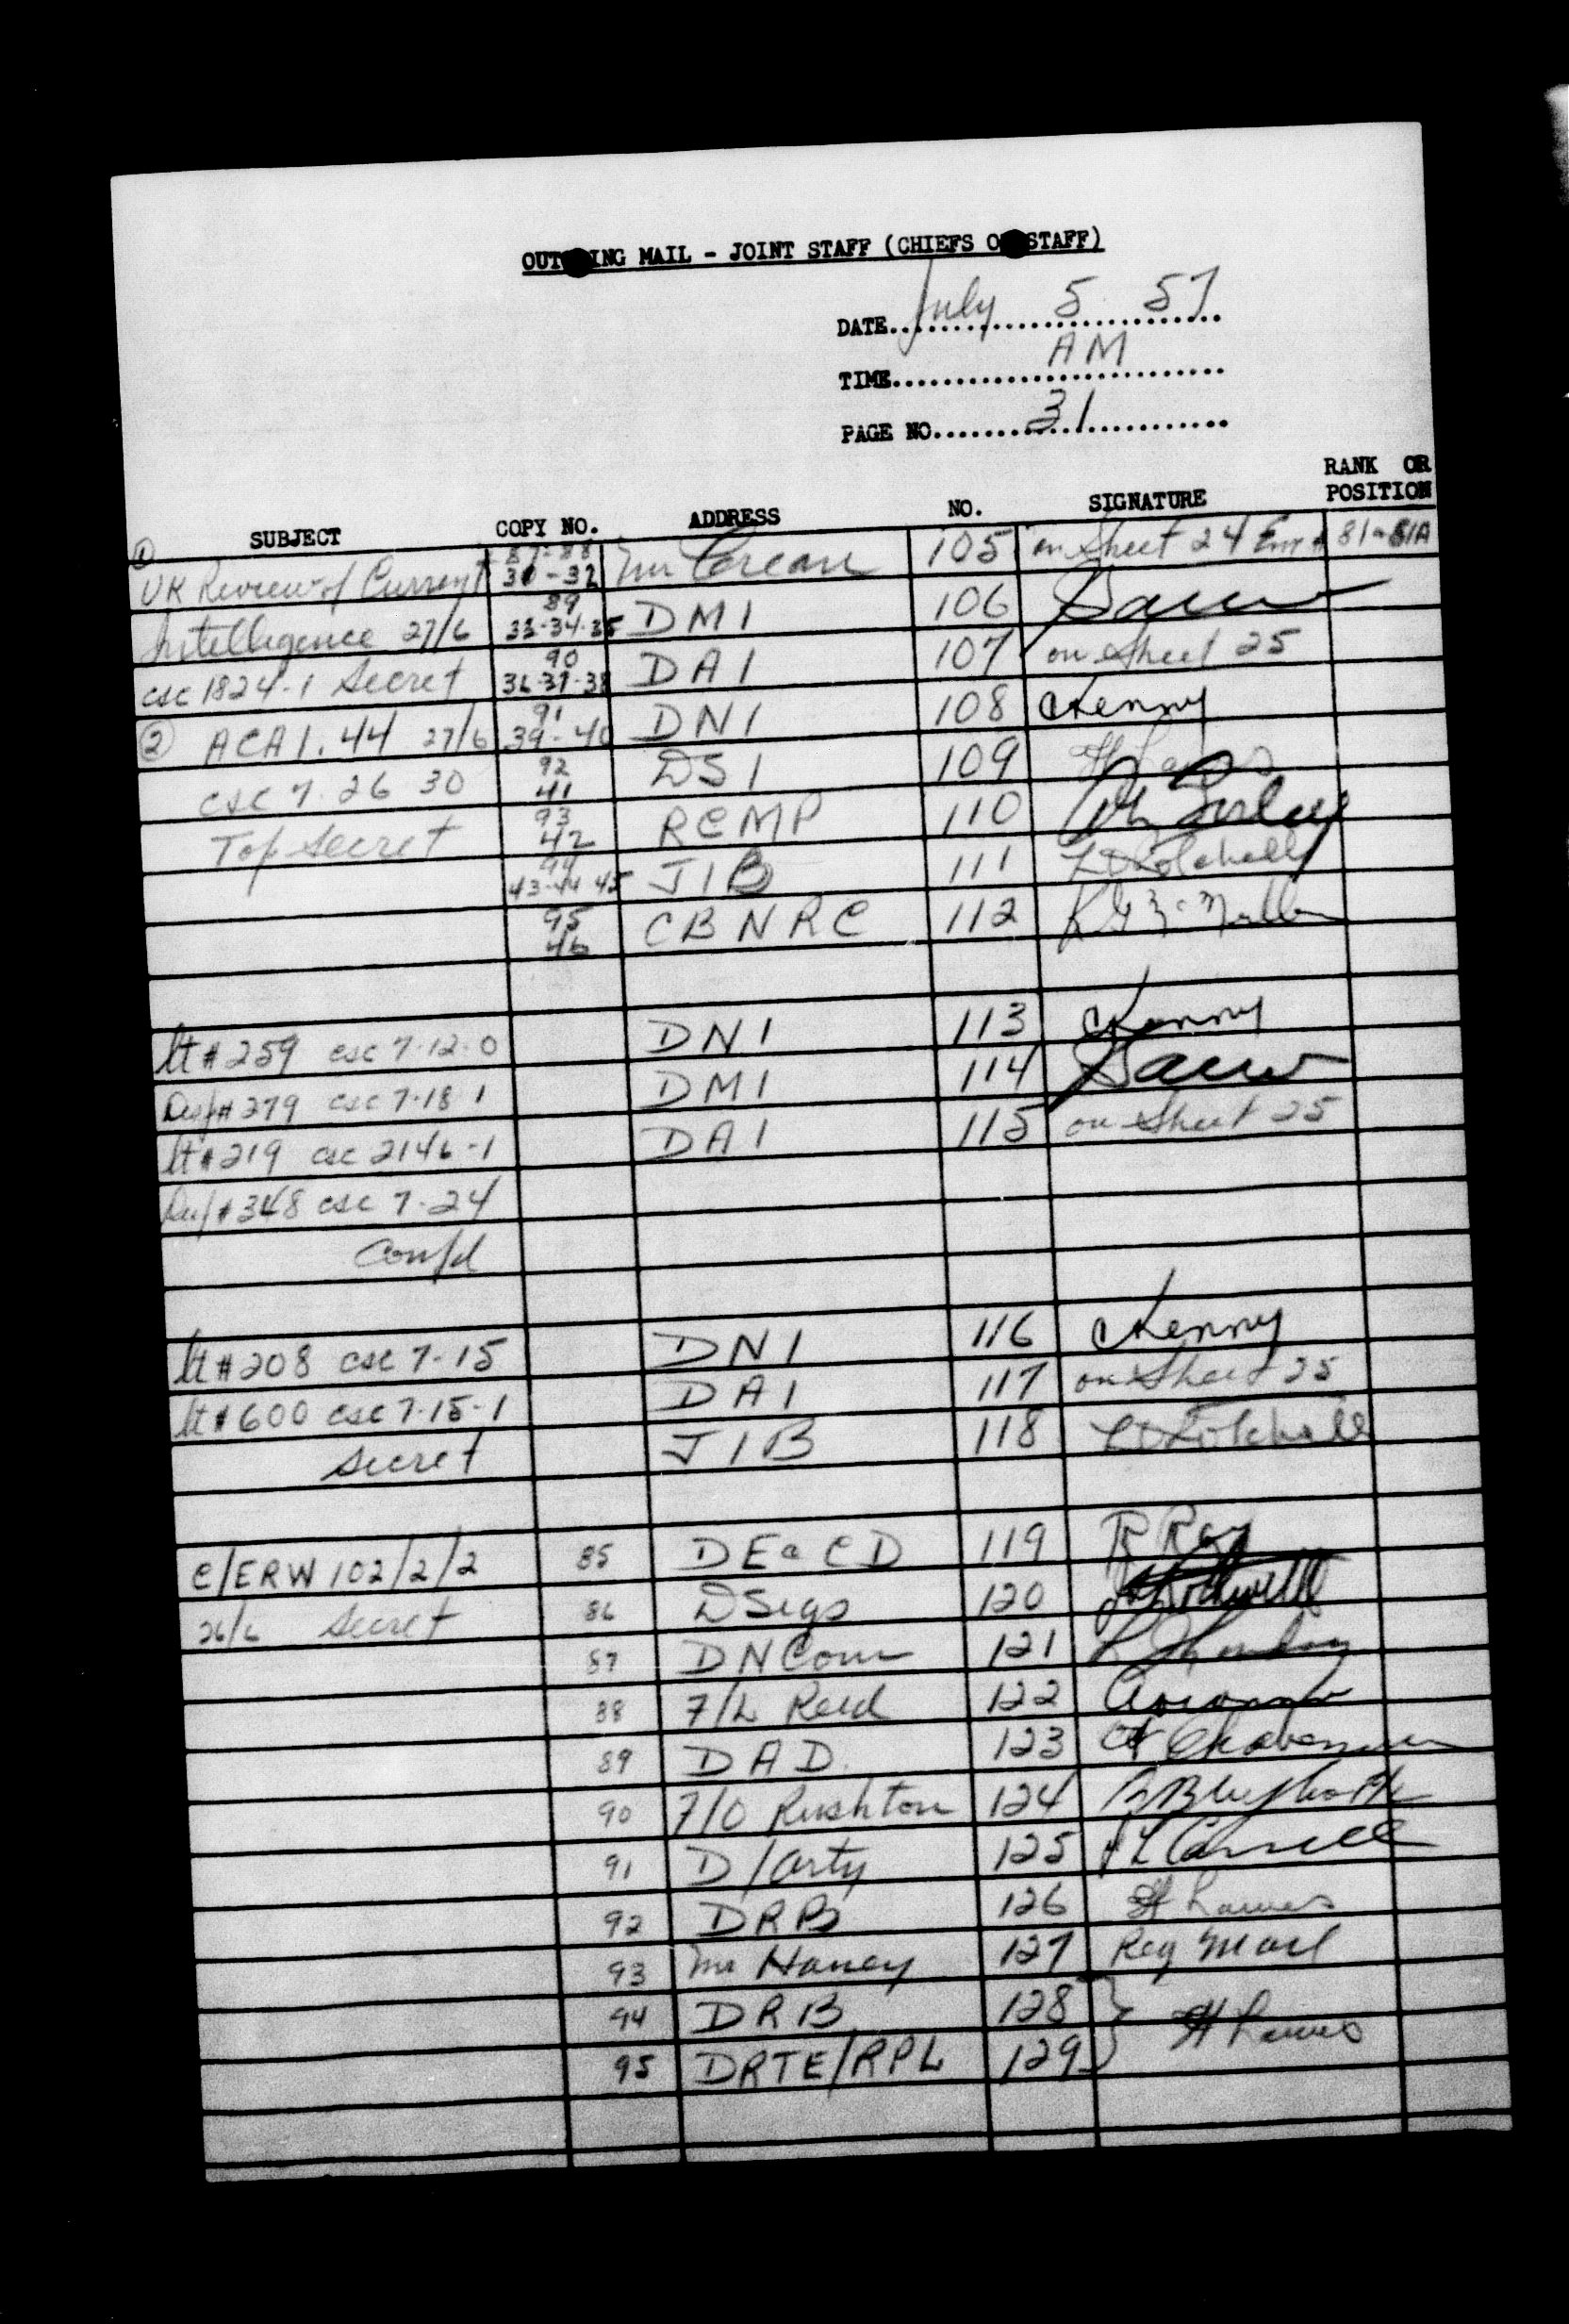 OUTGOING MAIL - JOINT STAFF (CHIEFS OF STAFF)
DATE July 5 57
TIME AM
PAGE NO 31
SUBJECT COPY NO. ADDRESS NO. SIGNATURE RANK OR POSITION
① 87-88
UK Review of Current 30-32 Mr Crean 105 on Sheet 24 81-81A
89
Intelligence 27/6 33-34-35 DMI 106
90
csc 1824-1 Secret 36-37-38 DAI 107 on Sheet 25
91
② ACAI. 44 27/6 39-40 DNI 108 CKenny
92
csc 7-26 30 41 DSI 109
93
Top Secret 42 RCMP 110
94
43-44-45 JIB 111
95
46 CBNRC 112
lt # 259 csc 7-12-0 DNI 113 CKenny
Desp # 279 csc 7-18-1 DMI 114
lt # 219 csc 2146-1 DAI 115 on Sheet 25
Desp # 348 csc 7-24
Confd
lt # 208 csc 7-15 DNI 116 CKenny
lt # 600 csc 7-15-1 DAI 117 on Sheet 25
Secret JIB 118
C/ERW 102/2/2 85 DE&CD 119 R Ray
26/6 Secret 86 DSigs 120
87 DNCom 121
88 F/L Reid 122
89 DAD. 123
90 F/O Rushton 124
91 D/Arty 125
92 DRB 126 H Lawes
93 Mr Haney 127 Reg Mail
94 DRB 128 } H Lawes
95 DRTE/RPL 129